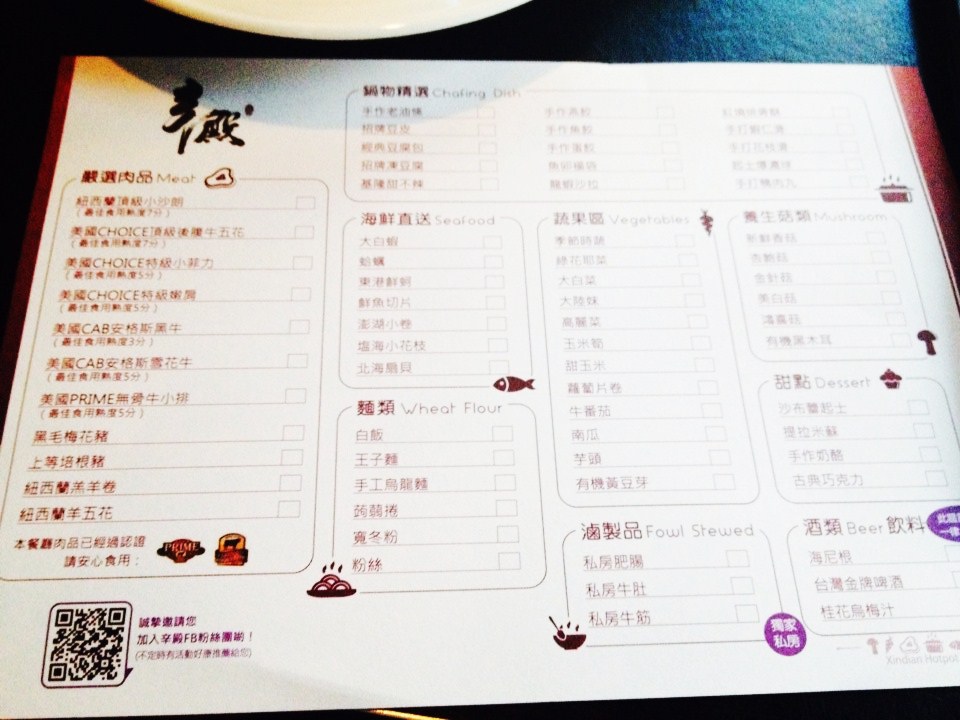 辛殿
嚴選肉品 Meat
紐西蘭頂級小沙朗
(最佳食用熟度7分)
美國CHOICE頂級後腹牛五花
(最佳食用熟度7分)
美國CHOICE特級小菲力
(最佳食用熟度5分)
美國CHOICE特級嫩肩
(最佳食用熟度5分)
美國CAB安格斯黑牛
(最佳食用熟度3分)
美國CAB安格斯雪花牛
(最佳食用熟度5分)
美國PRIME無骨牛小排
(最佳食用熟度5分)
黑毛梅花豬
上等培根豬
紐西蘭羔羊卷
紐西蘭羊五花
本餐廳肉品已經過認證
請安心食用：
PRIME
誠摯邀請您
加入辛殿FB粉絲團喲！
(不定時有活動好康推薦給您)
鍋物精選 Chafing Dish
手作老油條
招牌豆皮
經典豆腐包
招牌凍豆腐
基隆甜不辣
手作燕餃
手作魚餃
手作蛋餃
魚卵福袋
龍蝦沙拉
手打蝦仁滑
手打花枝滑
手打燒肉丸
海鮮直送 Seafood
大白蝦
蛤蠣
東港鮮蚵
鮮魚切片
澎湖小卷
塩海小花枝
北海扇貝
麵類 Wheat Flour
白飯
王子麵
手工烏龍麵
蒟蒻捲
寬冬粉
粉絲
蔬果區 Vegetables
季節時蔬
綠花椰菜
大白菜
大陸妹
高麗菜
玉米筍
甜玉米
蘿蔔片卷
牛番茄
南瓜
芋頭
有機黃豆芽
養生菇類 Mushroom
新鮮香菇
杏鮑菇
金針菇
美白菇
鴻喜菇
有機黑木耳
甜點 Dessert
沙布蕾起士
提拉米蘇
手作奶酪
古典巧克力
滷製品 Fowl Stewed
私房肥腸
私房牛肚
私房牛筋
獨家
私房
酒類 Beer 飲料
海尼根
台灣金牌啤酒
桂花烏梅汁
Xindian Hotpot